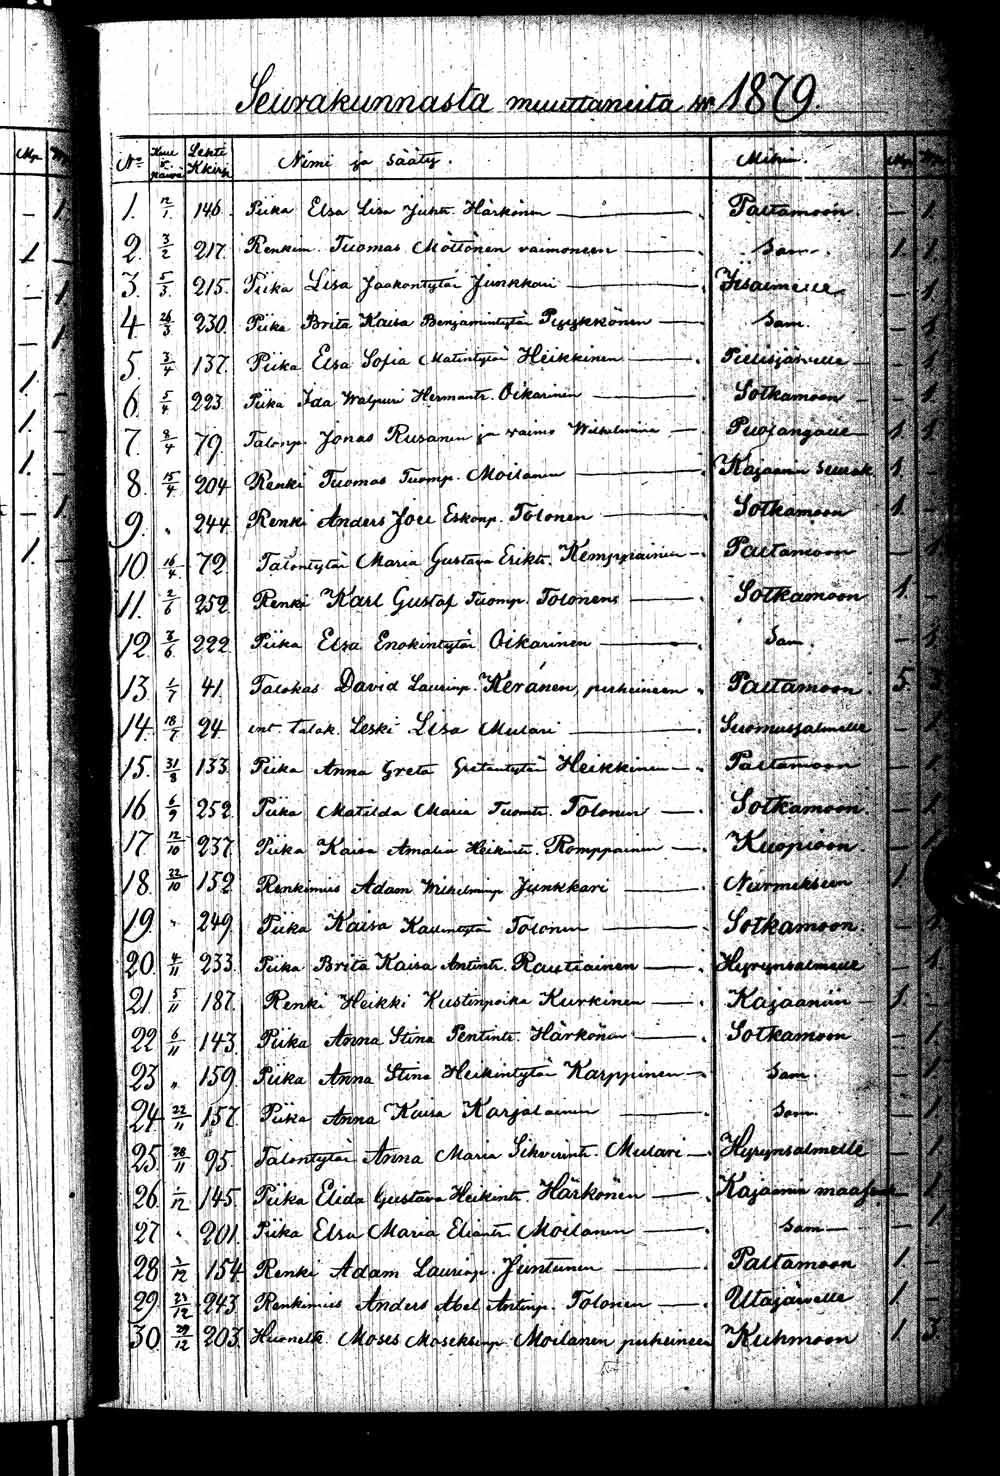 Seurakunnasta muuttaneita w. 1879.
No Kuu & päivä Lehti Kkirj. Nimi ja sääty. Mihin. Mp. Wp.
1. 12/1. 146. Piika Elsa Lisa Juht. Härkönen Paltamoon. — 1.
2. 3/2 217. Renkim. Tuomas Möttönen vaimoneen Sam. 1. 1.
3. 5/3. 215. Piika Lisa Jaakontytär Junkkari Iisalmelle — 1.
4 26/3 230. Piika Brita Kaisa Benjamintytär Pyykkönen Sam. — 1.
5. 3/4 137. Piika Elsa Sofia Matintytär Heikkinen Pielisjärvelle — 1.
6. 5/4 223. Piika Ida Walpuri Hermantr. Oikarinen Sotkamoon — 1.
7. 8/4 79. Talonp. Jonas Rusanen ja vaimo Wilhelmina Puolangalle 1. 1.
8. 15/4 204 Renki Tuomas Tuomp. Moilanen Kajaanin seurak. 1. -
9. " 244. Renki Anders Joel Eskonp. Tolonen Sotkamoon 1. -
10 16/4 72. Talontytär Maria Gustava Eriktr. Kemppainen Paltamoon — 1.
11. 2/6 252. Renki Karl Gustaf Tuomp. Tolonen Sotkamoon 1. -
12. 3/6 222 Piika Elsa Enokintytär Oikarinen Sam. — 1.
13. 1/7 41. Talokas David Laurinp. Keränen, perheineen Paltamoon. 5.
14. 18/7 24 ent. talok. Leski Lisa Mulari Suomussalmelle — 1.
15. 31/8 133. Piika Anna Greta Gretantytär Heikkinen Paltamoon — 1.
16. 6/9 252. Piika Matilda Maria Tuomtr. Tolonen Sotkamoon. — 1.
17 12/10 237. Piika Kaisa Amalia Heikintr. Romppainen Kuopioon. — 1.
18. 22/10 152 Renkimies Adam Wilhelminp. Junkkari Nurmekseen 1.
19. " 249. Piika Kaisa Kallentytär Tolonen Sotkamoon. — 1.
20. 4/11 233. Piika Brita Kaisa Antintr. Rautiainen Hyrynsalmelle — 1.
21 5/11 187. Renki Heikki Kustinpoika Kurkinen Kajaaniin 1. -
22 6/11 143. Piika Anna Stina Pentintr. Härkönen Sotkamoon — 1.
23 " 159. Piika Anna Stina Heikintytär Karppinen Sam. — 1.
24 22/11 157. Piika Anna Kaisa Karjalainen Sam. — 1.
25. 28/11 95. Talontytär Anna Maria Mulari Hyrynsalmelle — 1.
26. 1/12 145. Piika Elida Gustava Heikintr. Härkönen Kajaanin maaseur. — 1.
27 " 201. Piika Elsa Maria Eliantr. Moilanen Sam — 1.
28 154. Renki Adam Laurinp. Juntunen Paltamoon 1. -
29 243. Renkimies Anders Abel Antinp. Tolonen Utajärvelle 1. -
30. 29/12 203. Moses Moseksenp. Moilanen perheineen Kuhmoon 1. 3.